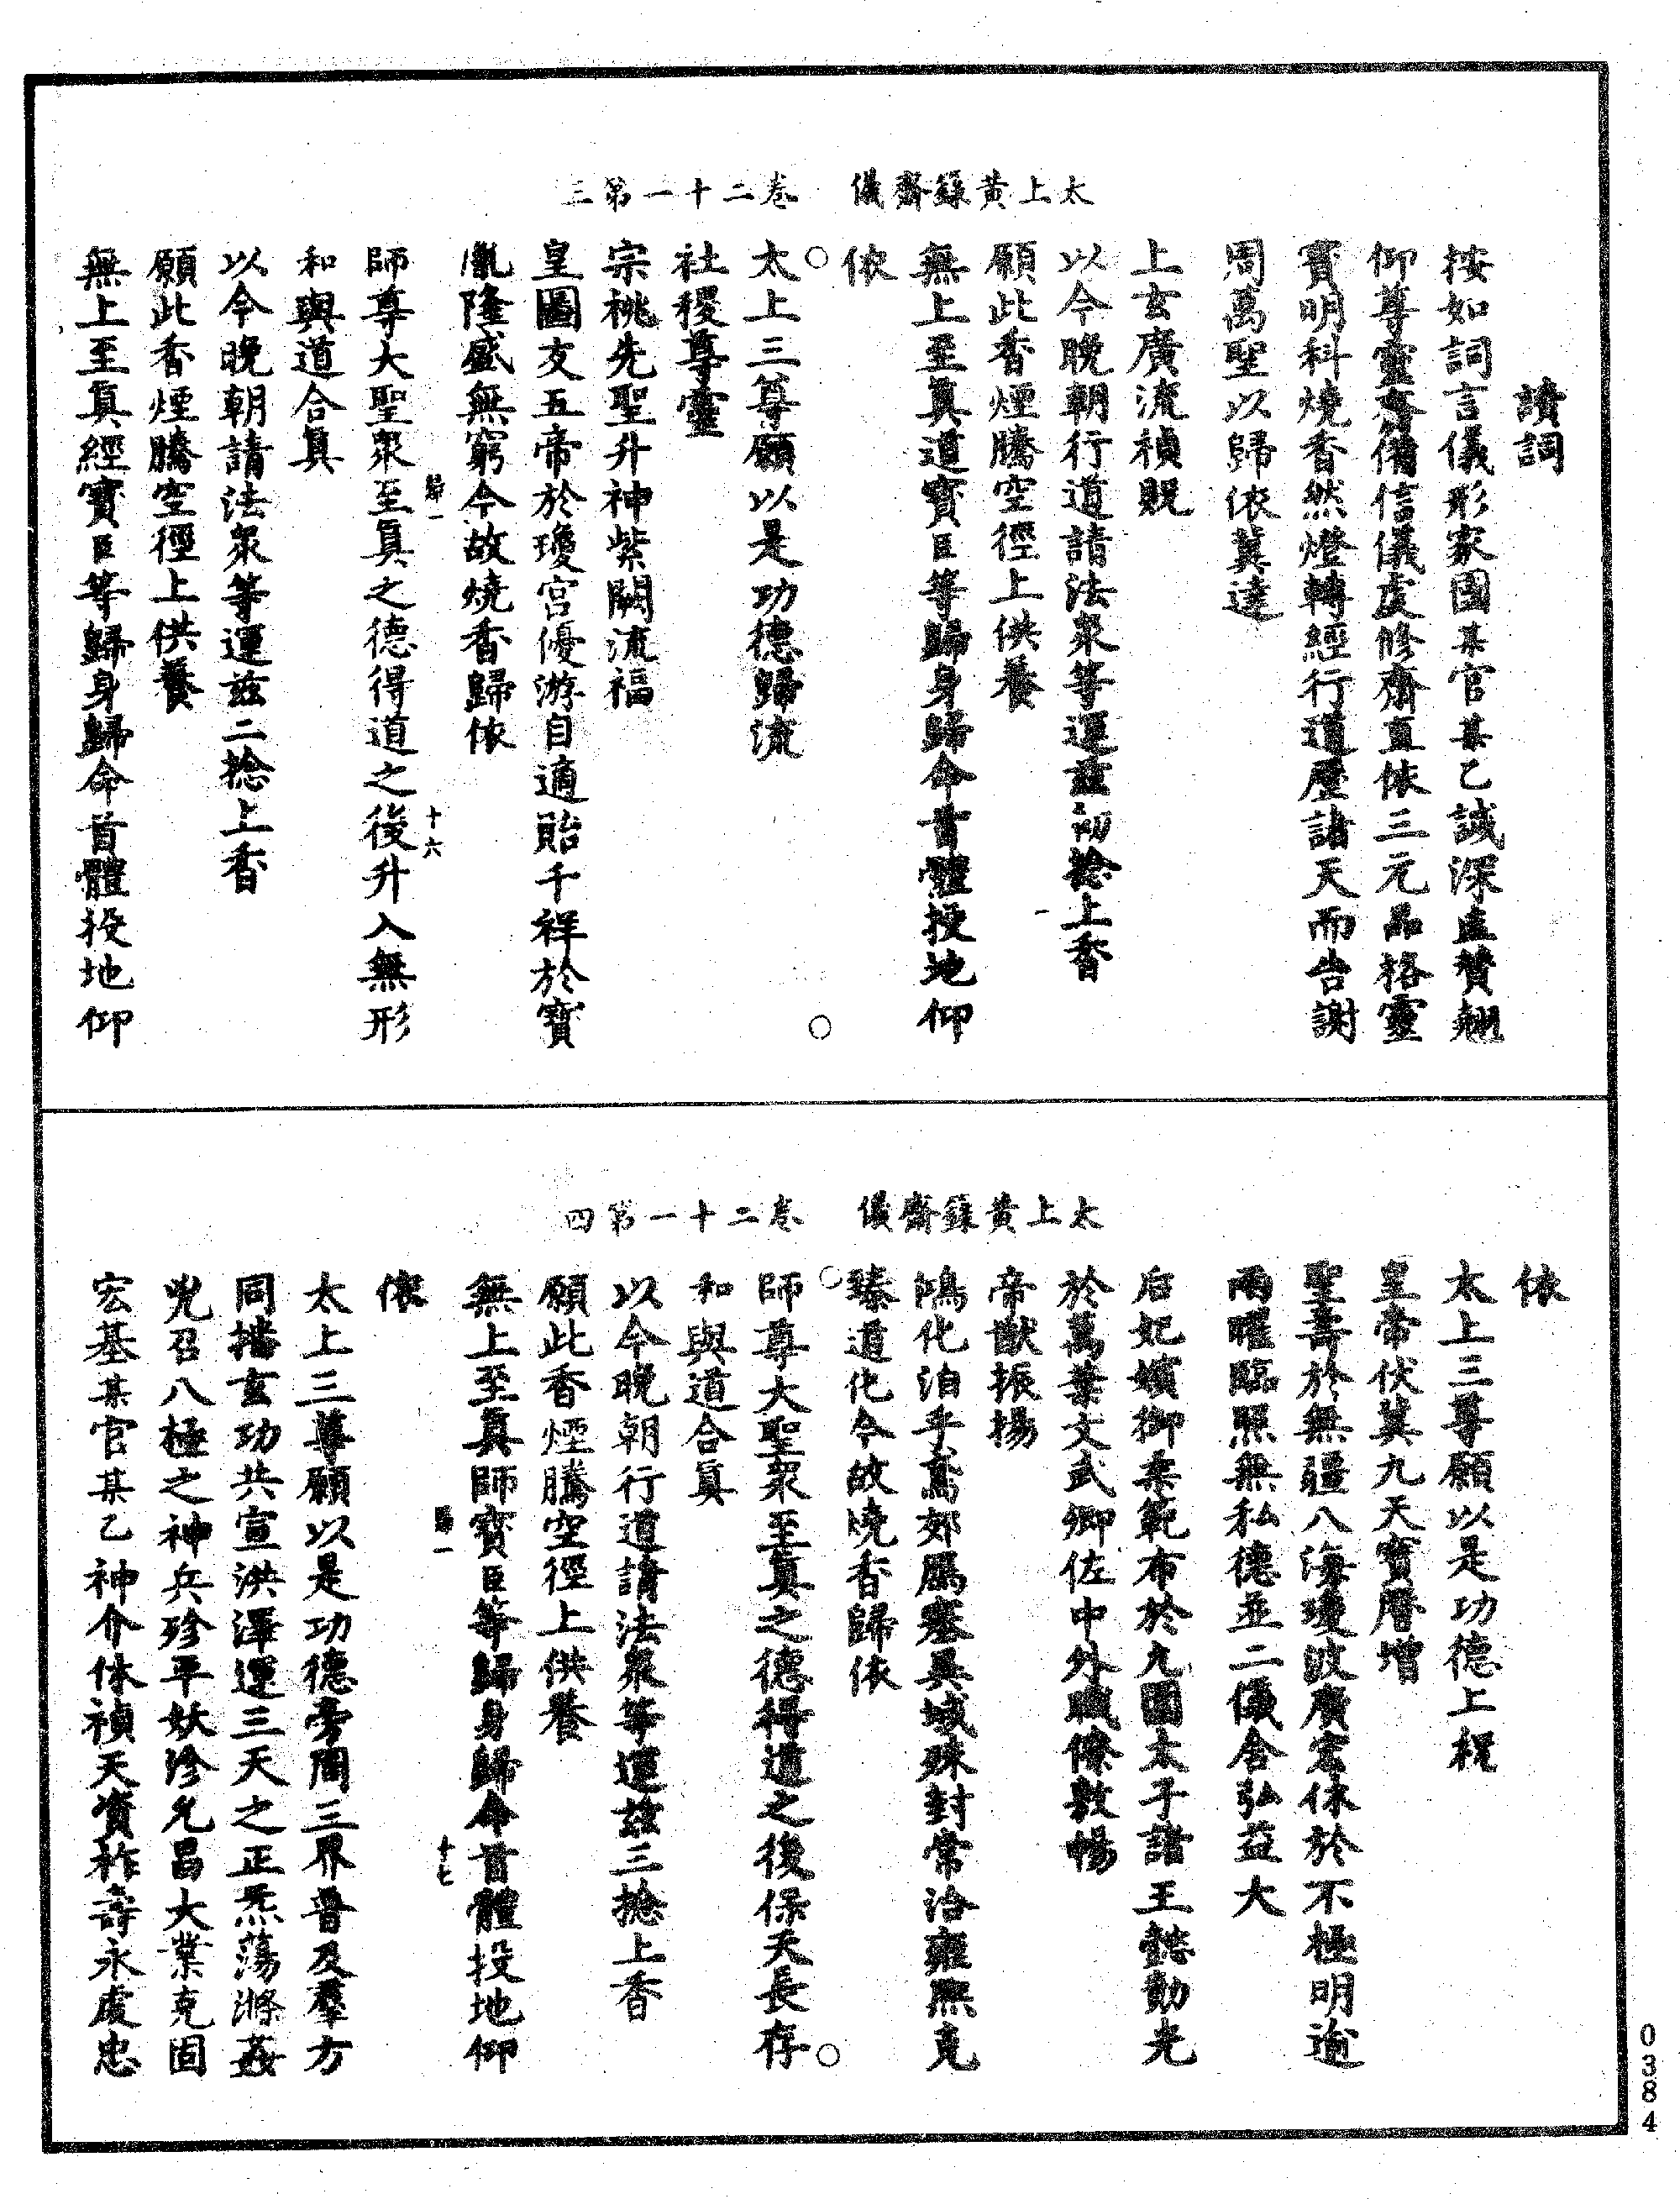 太上黃籙齋儀　卷二十一第三
讀詞
按如詞言儀形家國某官某乙誠深虔贊翹
仰尊靈齋備信儀虔修齋直依三元品格靈
寶明科燒香然燈轉經行道歷諸天而告謝
周萬聖以歸依冀達
上玄廣流禎貺
以今晚朝行道請法衆等運茲初捻上香
願此香煙騰空徑上供養
無上至眞道寶臣等歸身歸命首體投地仰
依
太上三尊願以是功德歸流
社稷尊靈
宗祧先聖升神紫闕流福
皇圖友五帝於瓊宮優游自適貽千祥於寶
胤隆盛無窮今故燒香歸依
師尊大聖衆至眞之德得道之後升入無形
和與道合眞
以今晚朝請法衆等運茲二捻上香
願此香煙騰空徑上供養
無上至眞經寶臣等歸身歸命首體投地仰
歸一　十六
太上黃籙齋儀　卷二十一第四
依
太上三尊願以是功德上祝
皇帝伏冀九天寶曆增
聖壽於無疆八海瓊波廣宏休於不極明逾
兩曜臨照無私德並二儀含弘益大
后妃嬪御柔範布於九圍太子諸王懿勳光
於萬葉文武卿佐中外職僚敷暢
帝猷振揚
鴻化洎乎嵩郊屬塞異域殊封常洽雍熙克
臻道化今故燒香歸依
師尊大聖衆至眞之德得道之後保天長存
和與道合眞
以今晚朝行道請法衆等運茲三捻上香
願此香煙騰空徑上供養
無上至眞師寶臣等歸身歸命首體投地仰
依
太上三尊願以是功德旁周三界普及羣方
同播玄功共宣洪澤運三天之正炁蕩滌姦
兇召八極之神兵殄平妖沴允昌大業克固
宏基某官某乙神介休禎天資祚壽永處忠
歸一　十七
0384